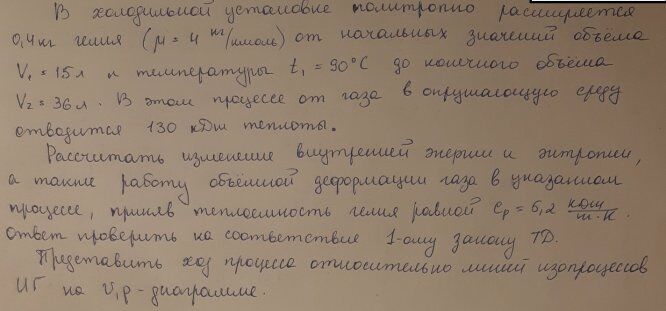 В холодильной установке политропно расширяется
0,4 кг гелия (μ = 4 кг/кмоль) от начальных значений объёма
V₁ = 15 л и температуры t₁ = 90°C до конечного объёма
V₂ = 36 л. В этом процессе от газа в окружающую среду
отводится 130 кДж теплоты.
Рассчитать изменение внутренней энергии и энтропии,
а также работу объёмной деформации газа в указанном
процессе, приняв теплоемкость гелия равной cp = 5,2 кДж/кг·К.
Ответ проверить на соответствие 1-ому закону ТД.
Представить ход процесса относительно линий изопроцессов
ИГ на v,p-диаграмме.